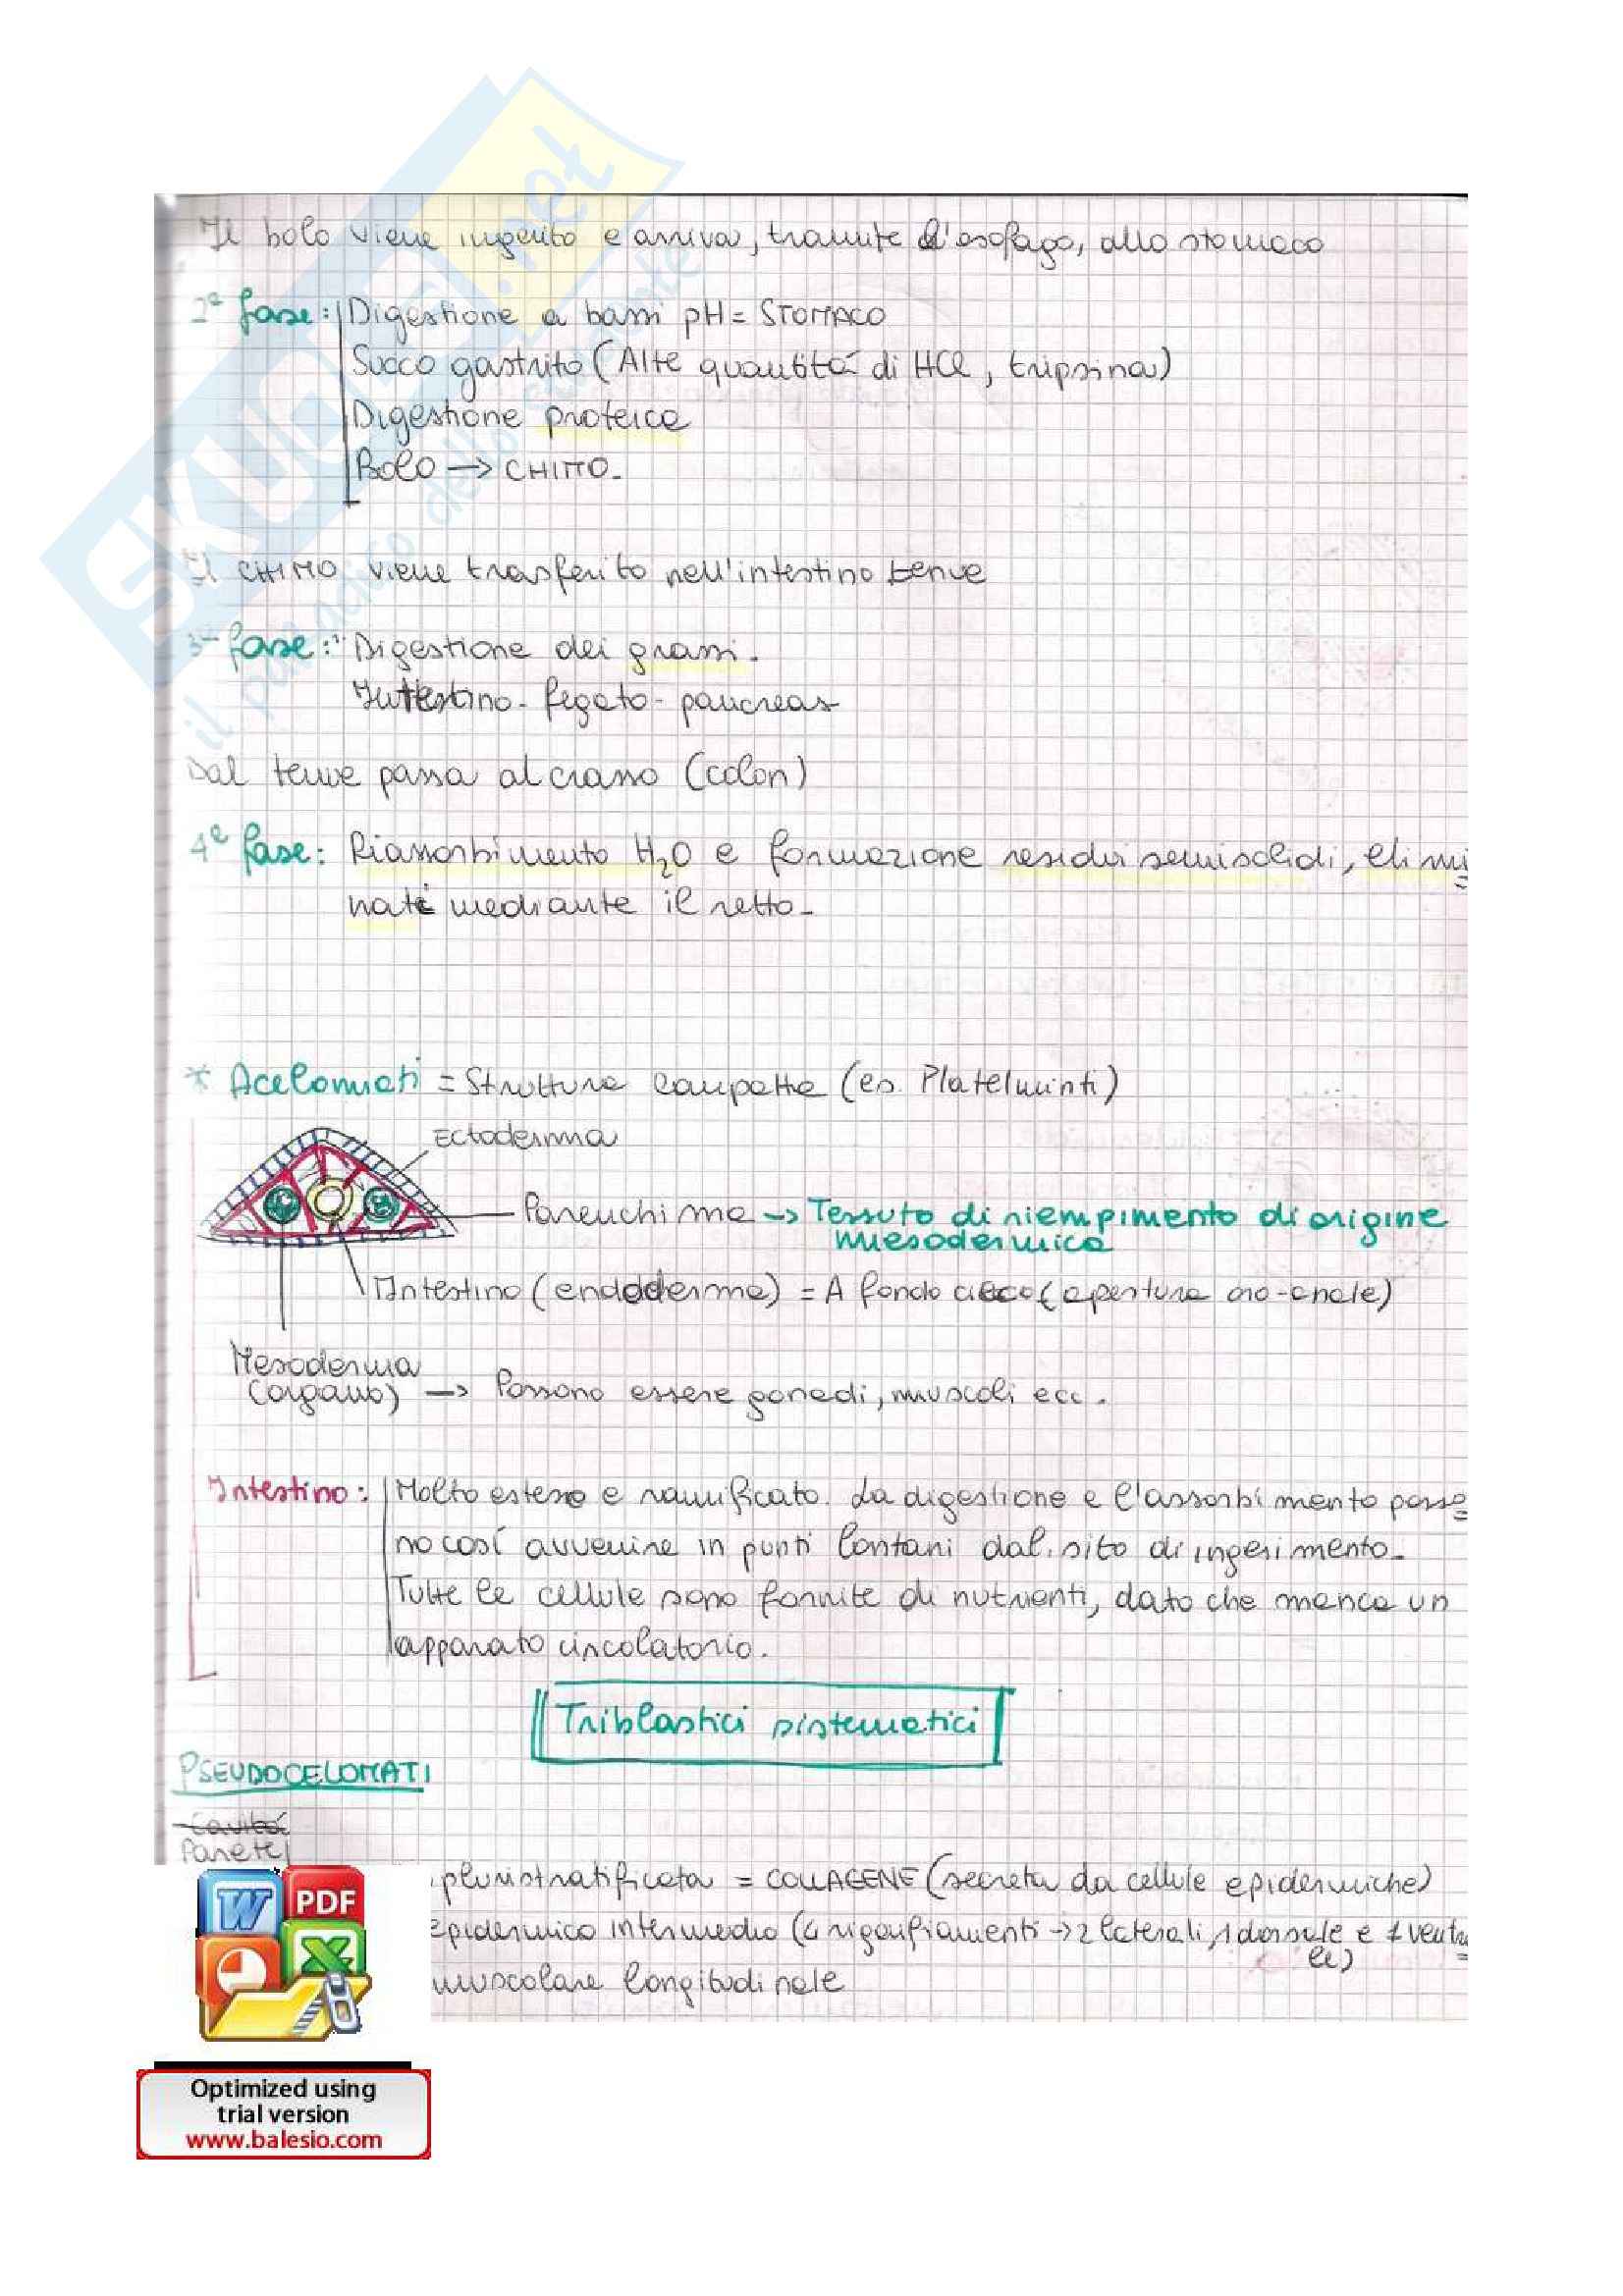 Il bolo viene ingerito e arriva, tramite l'esofago, allo stomaco
2ª fase: Digestione a bassi pH = STOMACO
Succo gastrito (Alte quantità di HCl, tripsina)
Digestione proteica
Bolo → CHIMO.
Il CHIMO viene trasferito nell'intestino tenue
3ª fase: Digestione dei grassi.
Intestino - fegato - pancreas
Dal tenue passa al crasso (colon)
4ª fase: Riassorbimento H₂O e formazione residui semisolidi, elimi
nati mediante il retto.
* Acelomati = Struttura compatta (es. Platelminti)
Ectoderma
Parenchima → Tessuto di riempimento di origine
mesodermica
Intestino (endoderma) = A fondo cieco (apertura oro-anale)
Mesoderma
(organo) → Possono essere gonadi, muscoli ecc.
Intestino: Molto esteso e ramificato. La digestione e l'assorbimento posso
no così avvenire in punti lontani dal sito di ingerimento.
Tutte le cellule sono fornite di nutrienti, dato che manca un
apparato circolatorio.
Triblastici sistematici
PSEUDOCELOMATI
Cavità
Parete
pluristratificata = COLLAGENE (secreta da cellule epidermiche)
epidermico intermedio (4 rigonfiamenti → 2 laterali, 1 dorsale e 1 ventra
le)
muscolare longitudinale
SKUOLA.net
il paradiso dello studente
W PDF
X
Optimized using
trial version
www.balesio.com